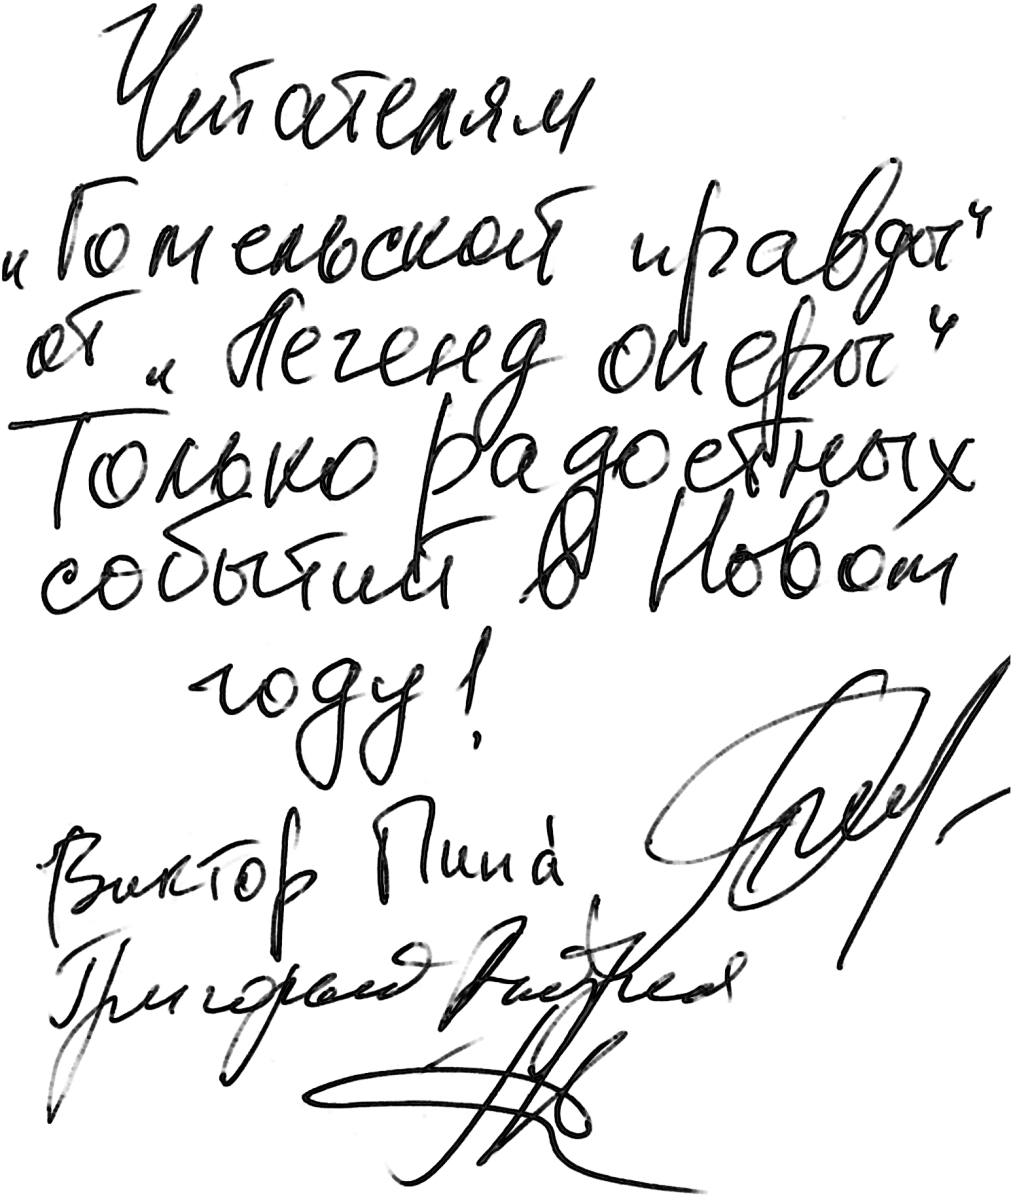 Читателям
„Гомельской правды“
от „Легенд оперы“
Только радостных
событий в Новом
году!
Виктор Пипа́
Григорьев